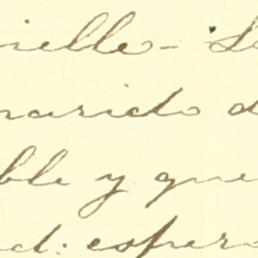 ielle - Lo
marido d
ble y que
d: esper